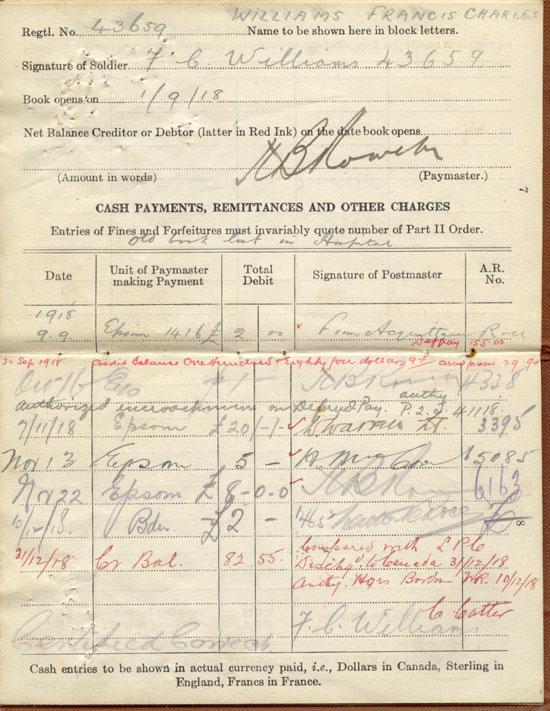 WILLIAMS FRANCIS CHARLES
Regtl. No. 43659 Name to be shown here in block letters.
Signature of Soldier F C Williams 43659
Book opens on 1/9/18
Net Balance Creditor or Debtor (latter in Red Ink) on the date book opens
(Amount in words) (Paymaster.)
7
CASH PAYMENTS, REMITTANCES AND OTHER CHARGES
Entries of Fines and Forfeitures must invariably quote number of Part II Order.
Old book lost in Hospital
Date Unit of Paymaster making Payment Total Debit Signature of Postmaster A.R. No.
1918
9.9. Epsom 1416 £ 2 00 From Acquittance Roll
Def pay 155 00
30 Sep 1918 Credit Balance One Hundred & Eighty four dollars 29.90
4338
authorized encroachment on Deferred Pay. authy P.2.9. 41118.
7/11/18 Epsom £20/-/- 3395
Nov 13 Epsom 5 - 15085
Nov 22 Epsom £8-0-0 6163
10/12/18. Bdn £2 -
8
31/12/18 Cr Bal. 82 55. Compared with L P C
"Dischg" to Canada 31/12/18
Authy. Hqrs Bordon 10/12/18
C Cotter
F. C. Williams
Certified Correct
Cash entries to be shown in actual currency paid, i.e., Dollars in Canada, Sterling in
England, Francs in France.